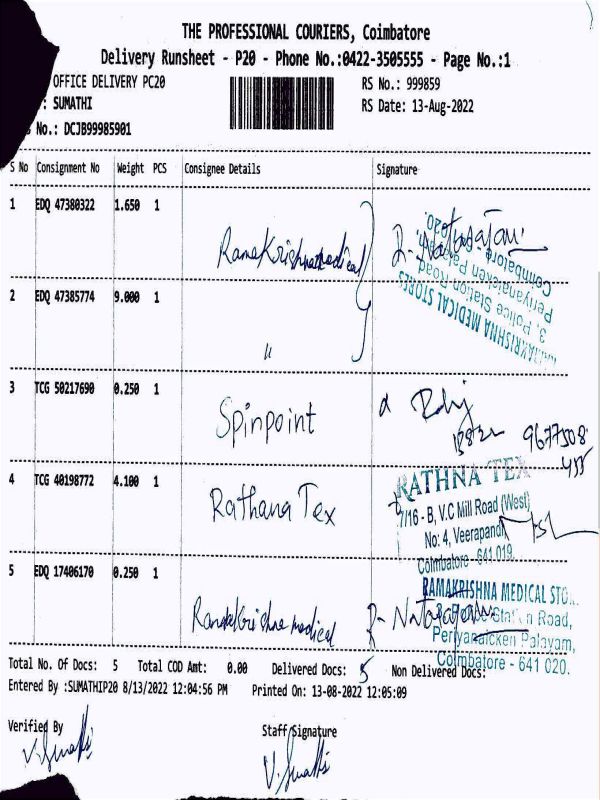 THE PROFESSIONAL COURIERS, Coimbatore
Delivery Runsheet - P20 - Phone No.:0422-3505555 - Page No.:1
OFFICE DELIVERY PC20
RS No.: 999859
: SUMATHI
RS Date: 13-Aug-2022
No.: DCJB99985901
S No Consignment No Weight PCS Consignee Details Signature
1 EDQ 47380322 1.650 1
Ramakrishna medical R. Natarajan
RAMAKRISHNA MEDICAL STORES
3, Police Station Road
Periyanaicken Palayam,
Coimbatore - 020.
2 EDQ 47385774 9.000 1
〃
3 TCG 50217690 0.250 1
Spinpoint
9677508
455
4 TCG 40198772 4.100 1
Rathana Tex
RATHNA TEX
7/16 - B, V.C Mill Road (West)
No: 4, Veerapandi
Coimbatore - 641 019.
5 EDQ 17406170 0.250 1
Ramakrishna medical R. Natarajan
RAMAKRISHNA MEDICAL STO
Station Road,
Periyanaicken Palayam,
Coimbatore - 641 020.
Total No. Of Docs: 5 Total COD Amt: 0.00 Delivered Docs: 5 Non Delivered Docs:
Entered By :SUMATHIP20 8/13/2022 12:04:56 PM Printed On: 13-08-2022 12:05:09
Verified By Staff Signature
V. Sumathi V. Sumathi